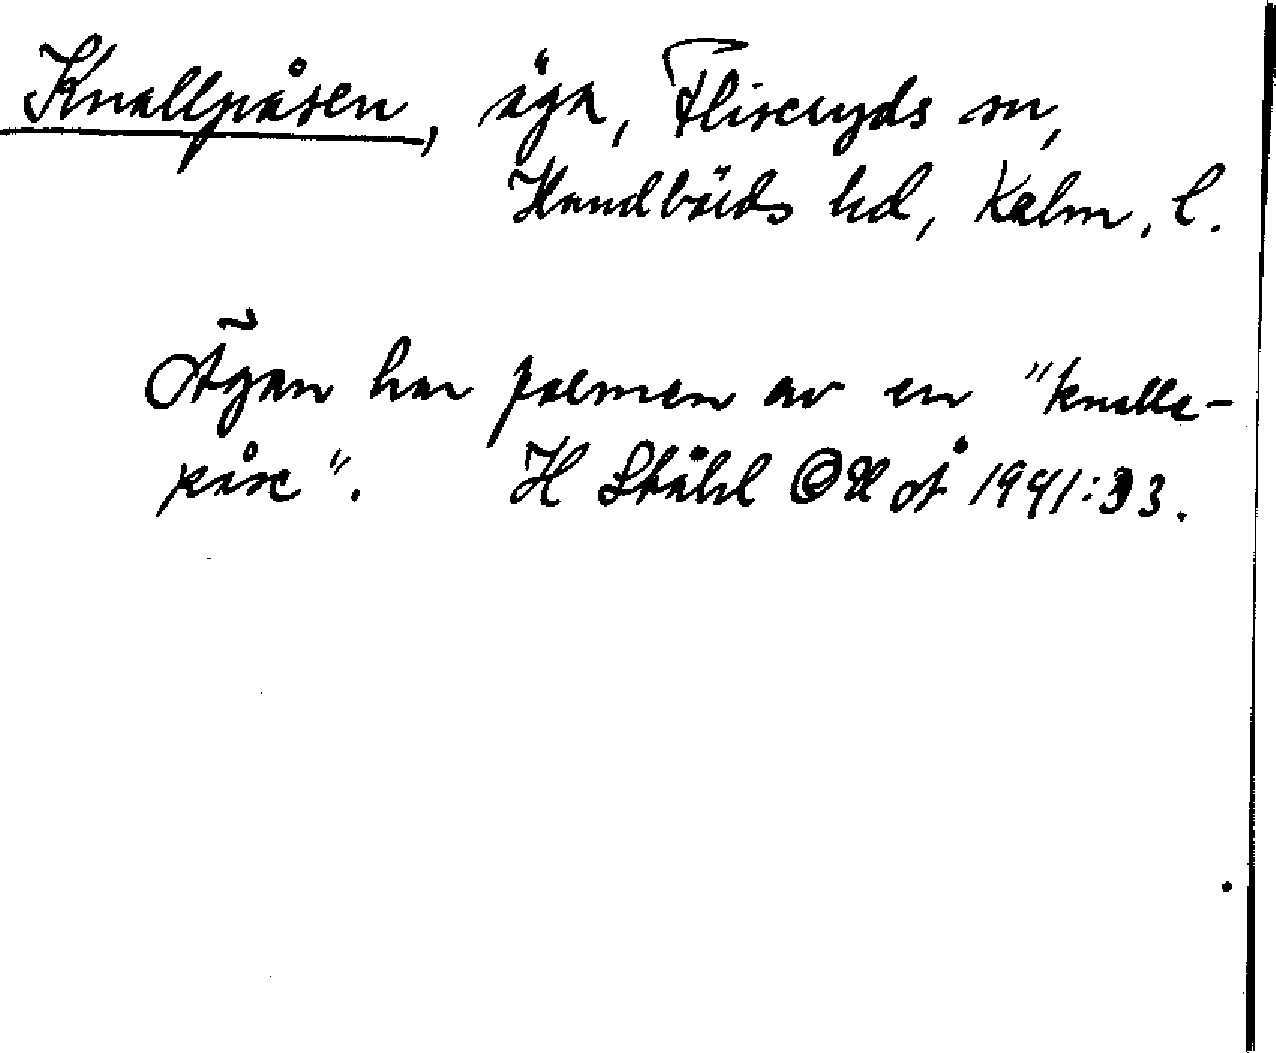 Knallpåsen, äga, Fliseryds sn,
Handbörds hd, Kalm. l.
Ägan har formen av en "knalle-
påse". H Ståhl OH å 1941:33.